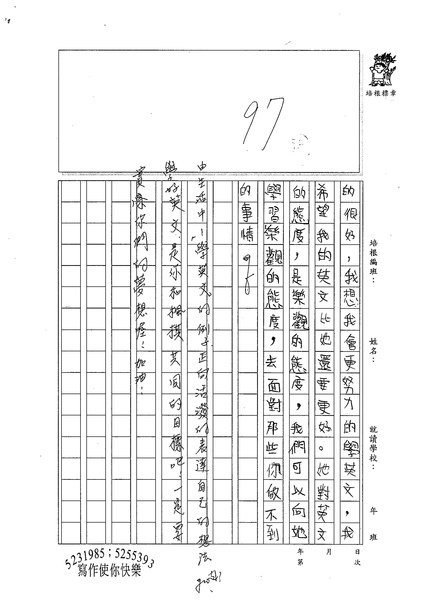 培根標章
培根編班：
姓名：
就讀學校：
年 班
97
的很好，我想我會更努力的學英文，我
希望我的英文比她還要更好。她對英文
的態度，是樂觀的態度，我們可以向她
學習樂觀的態度，去面對那些你做不到
的事情。
由生活中「學英文」的例子正向活潑的表達自己的想法
學好英文，是你和楓祺共同的目標吧！一定要
實象你們的夢想喔！加油！
年 月 日
第 次
5231985；5255393
寫作使你快樂